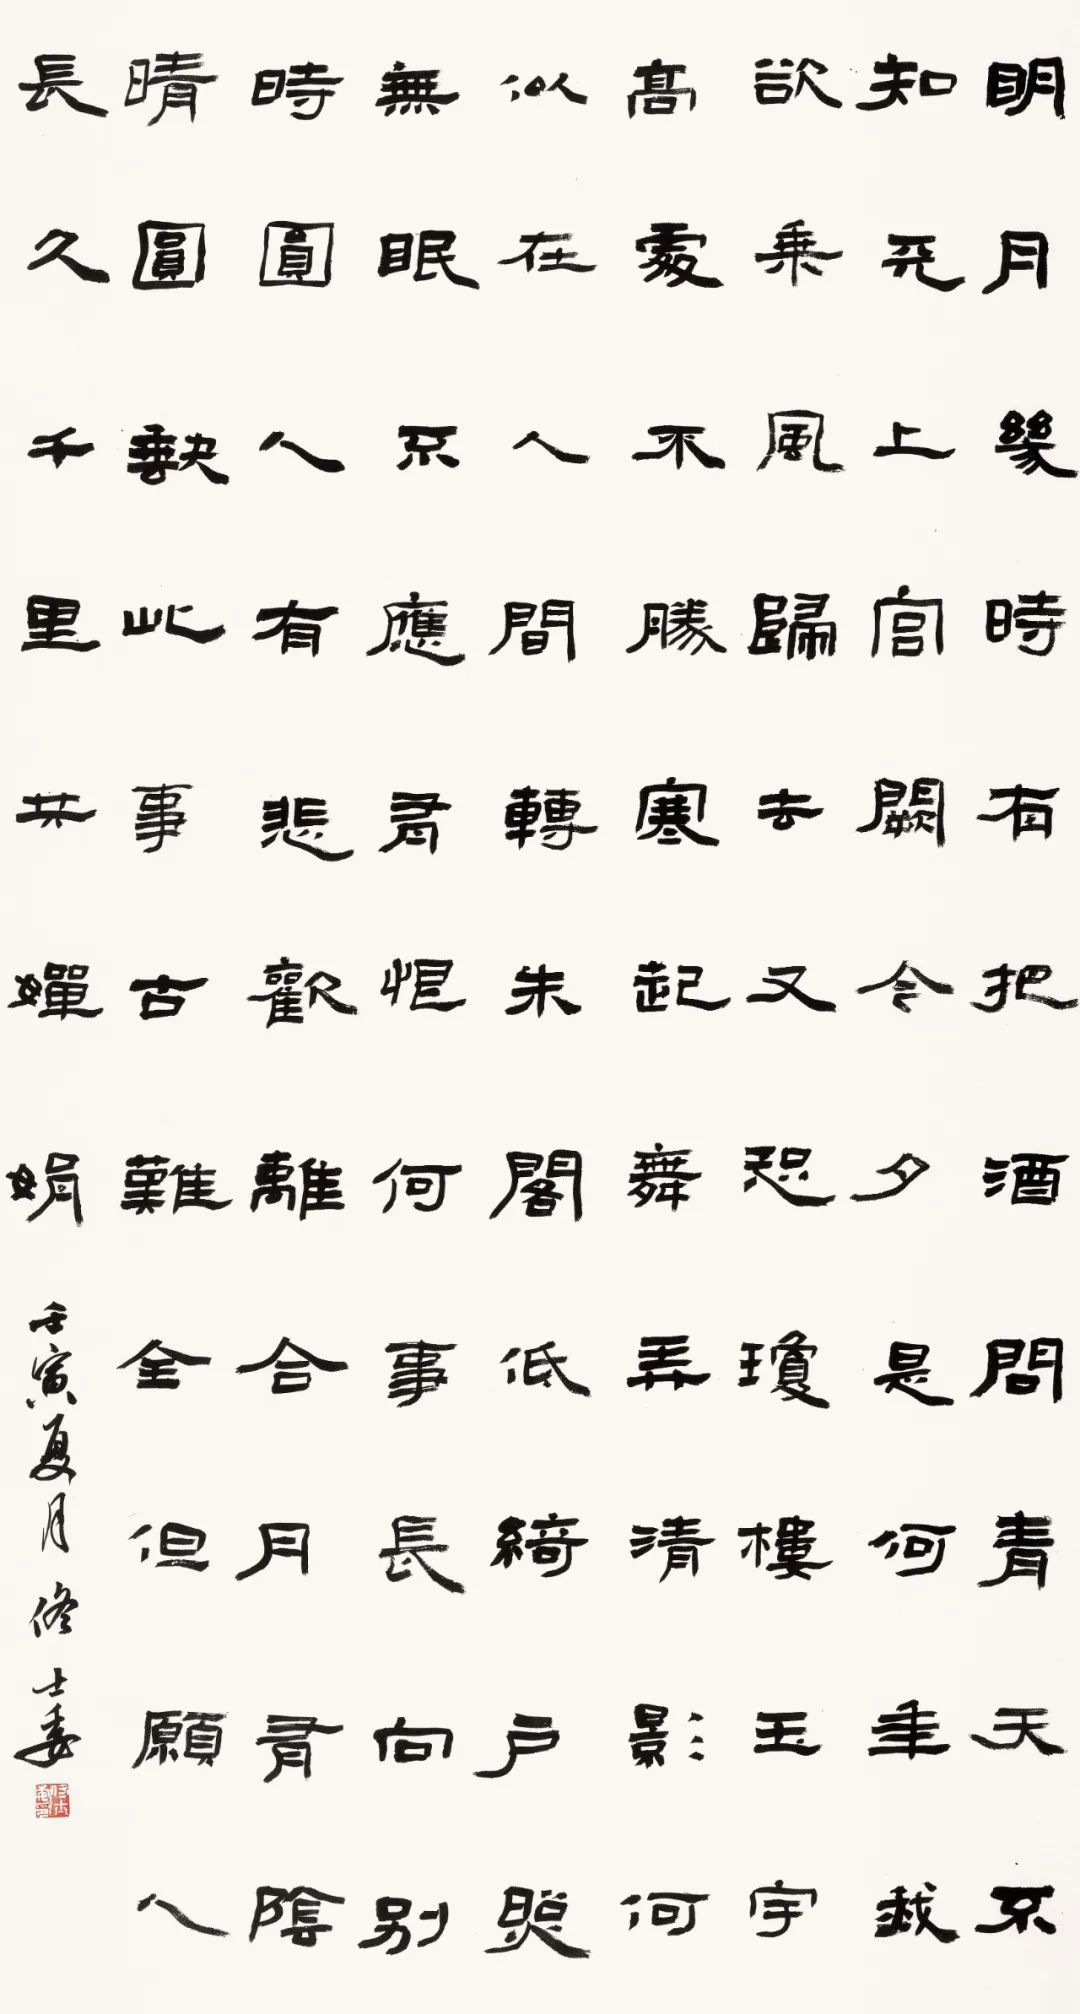 明月幾時有把酒問青天不
知天上宮闕今夕是何年我
欲乘風歸去又恐瓊樓玉宇
髙處不勝寒起舞弄清影何
似在人間轉朱閣低綺戶照
無眠不應有恨何事長向別
時圓人有悲歡離合月有陰
晴圓缺此事古難全但願人
長久千里共嬋娟
壬寅夏月